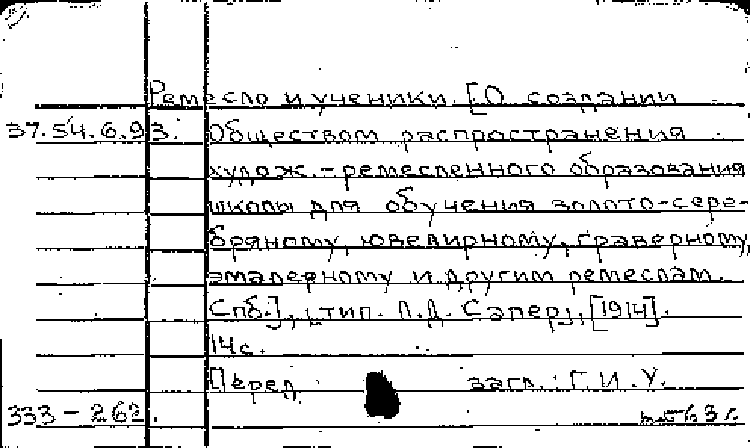 Ремесло и ученики. [О создании
37.54.6.93. Обществом распространения
худож.-ремесленного образования
школы для обучения золото-сере-
бряному, ювелирному, граверному,
эмалерному и другим ремеслам.
Спб.], тип. Л.Д. Сапер, [1914].
14с.
Перед загл.: Г.И.У.
333-262.